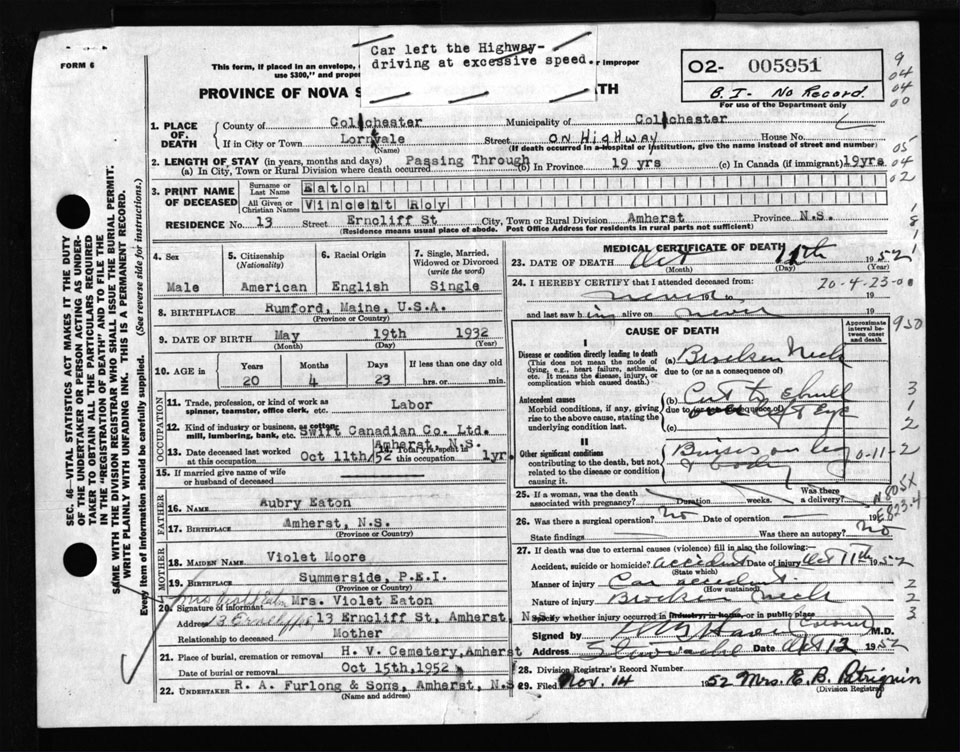 FORM 6
This form, if placed in an envelope,
or improper
use $300," and prope
Car left the Highway-
driving at excessive speed.
PROVINCE OF NOVA S
TH
O2- 005951
B.I- No Record.
For use of the Department only
9
04
04
00
1. PLACE OF DEATH
County of Colchester Municipality of Colchester
If in City or Town Lornvale Street ON HIGHWAY House No.
(Name) (If death occurred in a hospital or institution, give the name instead of street and number)
05
04
02
2. LENGTH OF STAY (in years, months and days) Passing Through (b) In Province 19 yrs (c) In Canada (if immigrant) 19yrs
(a) In City, Town or Rural Division where death occurred
3. PRINT NAME OF DECEASED
Surname or Last Name Eaton
All Given or Christian Names Vincent Roy
RESIDENCE No. 13 Street Erncliff St City, Town or Rural Division Amherst Province N.S.
(Residence means usual place of abode. Post Office Address for residents in rural parts not sufficient)
1
8
1
1
SEC. 46—VITAL STATISTICS ACT MAKES IT THE DUTY
OF THE UNDERTAKER OR PERSON ACTING AS UNDER-
TAKER TO OBTAIN ALL THE PARTICULARS REQUIRED
IN THE "REGISTRATION OF DEATH" AND TO FILE THE
SAME WITH THE DIVISION REGISTRAR WHO SHALL ISSUE THE BURIAL PERMIT.
WRITE PLAINLY WITH UNFADING INK. THIS IS A PERMANENT RECORD.
Every item of information should be carefully supplied. (See reverse side for instructions.)
4. Sex
Male
5. Citizenship
(Nationality)
American
6. Racial Origin
English
7. Single, Married,
Widowed or Divorced
(write the word)
Single
8. BIRTHPLACE Rumford, Maine, U.S.A.
(Province or Country)
9. DATE OF BIRTH May 19th 1932
(Month) (Day) (Year)
10. AGE in
Years Months Days If less than one day
20 4 23 hrs. or min.
OCCUPATION
11. Trade, profession, or kind of work as
spinner, teamster, office clerk, etc. Labor
12. Kind of industry or business, as cotton-
mill, lumbering, bank, etc. Swift Canadian Co. Ltd.
Amherst, N.S.
13. Date deceased last worked
at this occupation Oct 11th/52
14. Total yrs. spent in
this occupation 1yr.
15. If married give name of wife
or husband of deceased
FATHER
16. NAME Aubry Eaton
17. BIRTHPLACE Amherst, N.S.
(Province or Country)
MOTHER
18. MAIDEN NAME Violet Moore
19. BIRTHPLACE Summerside, P.E.I.
(Province or Country)
Mrs Violet Eaton
20. Signature of informant Mrs. Violet Eaton
Address 13 Erncliffe, 13 Erncliff St, Amherst, N.S
Relationship to deceased Mother
21. Place of burial, cremation or removal H. V. Cemetery, Amherst
Date of burial or removal Oct 15th, 1952
22. UNDERTAKER R. A. Furlong & Sons, Amherst, N.S
(Name and address)
MEDICAL CERTIFICATE OF DEATH
23. DATE OF DEATH Oct 11th 1952
(Month) (Day) (Year)
24. I HEREBY CERTIFY that I attended deceased from:
20-4-23-0
never 19 to 19
and last saw him alive on never 19
CAUSE OF DEATH
Approximate
interval be-
tween onset
and death
950
I
Disease or condition directly leading to death
(This does not mean the mode of
dying, e.g., heart failure, asthenia,
etc. It means the disease, injury, or
complication which caused death.)
(a) Brocken Neck
due to (or as a consequence of)
Antecedent causes
Morbid conditions, if any, giving
rise to the above cause, stating the
underlying condition last.
(b) Cut
due to (or as a consequence of) Left Eye
(c)
3
1
2
II
Other significant conditions
contributing to the death, but not
related to the disease or condition
causing it.
Bruises on leg
& body
0-11-2
25. If a woman, was the death
associated with pregnancy? Duration weeks. Was there
a delivery?
N 805X
E823.4
26. Was there a surgical operation? No Date of operation 19
State findings Was there an autopsy? No
27. If death was due to external causes (violence) fill in also the following:—
Accident, suicide or homicide? accident Date of injury Oct 11th 1952
(State which)
Manner of injury Car accident
(How sustained)
Nature of injury Brocken neck
Specify whether injury occurred in industry, in home, or in public place
2
2
3
Signed by (Coroner) M.D.
Address Date Oct 13 1952
28. Division Registrar's Record Number
29. Filed Nov. 14 1952 Mrs. E. B. Patriquin
(Division Registrar)